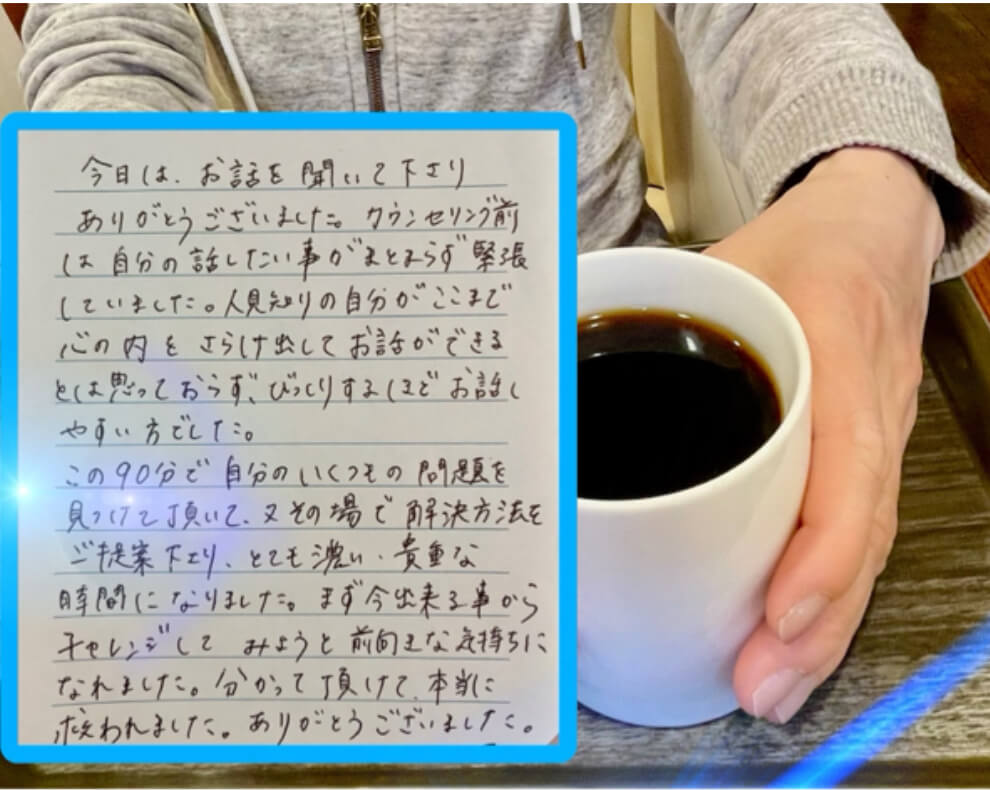 今日は、お話を聞いて下さり
ありがとうございました。カウンセリング前
は自分の話したい事がまとまらず緊張
していました。人見知りの自分がここまで
心の内をさらけ出してお話ができる
とは思っておらず、びっくりするほどお話し
やすい方でした。
この90分で自分のいくつもの問題を
見つけて頂いて、又その場で解決方法を
ご提案下さり、とても濃い、貴重な
時間になりました。まず今出来る事から
チャレンジしてみようと前向きな気持ちに
なれました。分かって頂けて、本当に
救われました。ありがとうございました。